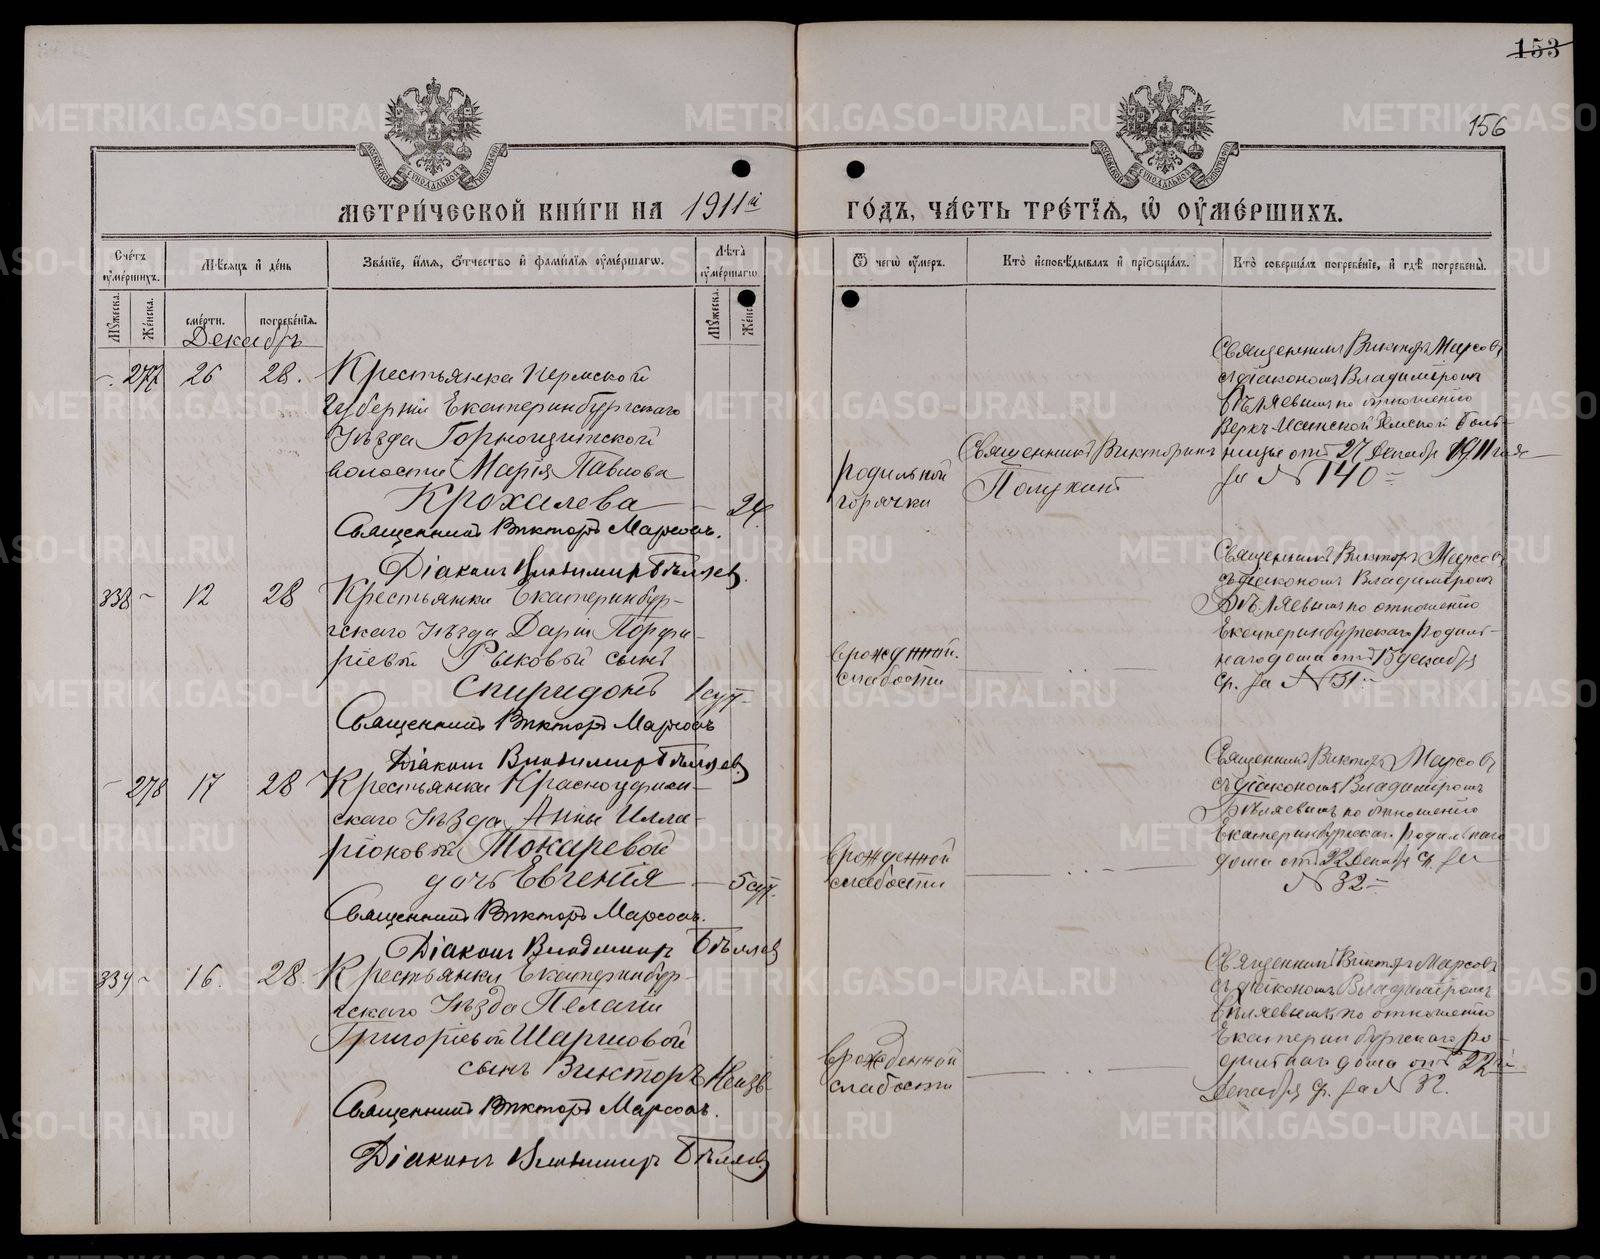 153
156
МОСКОВСКОЙ СѴНОДАЛЬНОЙ ТИПОГРАФІИ
МОСКОВСКОЙ СѴНОДАЛЬНОЙ ТИПОГРАФІИ
МЕТРИ́ЧЕСКОЙ КНИ́ГИ НА 1911й
ГО́ДЪ, ЧА́СТЬ ТРЕ́ТІѦ, Ѡ ОУ҆МЕ́РШИХЪ.
Сче́тъ оумéршихъ.
Мѣ́сяцъ и де́нь
Зва́нїе, и́мѧ, ѻ҆́тчество и҆ фами́лїѧ оу҆ме́ршагѡ.
Лѣ́та оу҆ме́ршагѡ.
Ѿ чегѡ̀ оу҆́меръ.
Кто̀ и҆сповѣ́дывалъ и҆ прїѡбща́лъ.
Кто̀ соверша́лъ погребе́нїе, и҆ гдѣ̀ погребены̀.
Мꙋжеска.
Же́нска.
сме́рти.
погребе́нїѧ.
Мꙋжеска.
Же́нск
Декабрь
277 26 28. Крестьянка Пермской
губерніи Екатеринбургскаго
уѣзда Горнощитской
волости Марія Павлова
Крохалева — 24
Священникъ Викторъ Марсовъ.
Діаконъ Владимиръ Бѣляев
родильной
горячки
Священникъ Викторинъ
Полукант
Священникъ Викторъ Марсовъ
съ діакономъ Владиміромъ
Бѣляевымъ по отношенію
Верхъ-Исетской Земской боль-
ницы отъ 27 декабря 1911 года
за № 140 —
338 – 12 28 Крестьянки Екатеринбур-
гскаго уѣзда Даріи Порфи-
ріевой Рыковой сынъ
Спиридонъ 1 сут.
Священникъ Викторъ Марсовъ
Діаконъ Владимиръ Бѣляев
врожденной
слабости
Священникъ Викторъ Марсовъ
съ діакономъ Владиміромъ
Бѣляевымъ по отношенію
Екатеринбургскаго родиль-
наго дома отъ 15 декабря
с.г. за № 31. –
– 278 17 28 Крестьянки Красноуфим-
скаго уѣзда Анны Илла-
ріоновой Токаревой
дочь Евгенія — 5 сут.
Священникъ Викторъ Марсовъ.
Діаконъ Владимиръ Бѣляев
врожденной
слабости
Священникъ Викторъ Марсовъ
съ діакономъ Владиміромъ
Бѣляевымъ по отношенію
Екатеринбургскаго родильнаго
дома отъ 22 декабря с.г. за
№ 32 –
339 – 16. 28. Крестьянки Екатеринбур-
гскаго уѣзда Пелагіи
Григоріевой Шаргиовой
сынъ Викторъ Неизв
Священникъ Викторъ Марсовъ.
Діаконъ Владимиръ Бѣляев
врожденной
слабости
Священникъ Викторъ Марсовъ
съ діакономъ Владиміромъ
Бѣляевымъ по отношенію
Екатеринбургскаго ро-
дильнаго дома отъ 22й
декабря с.г. за № 32.
METRIKI.GASO-URAL.RU